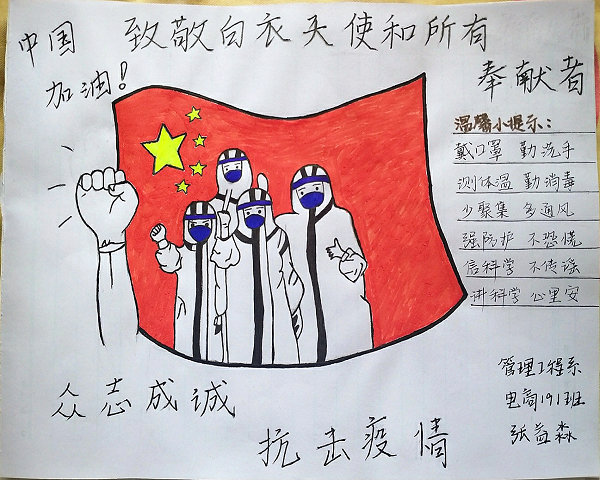 中国
加油！
致敬白衣天使和所有
奉献者
温馨小提示：
戴口罩 勤洗手
测体温 勤消毒
少聚集 多通风
强防护 不恐慌
信科学 不传谣
讲科学 心里安
众志成诚
抗击疫情
管理工程系
电商191班
张益森